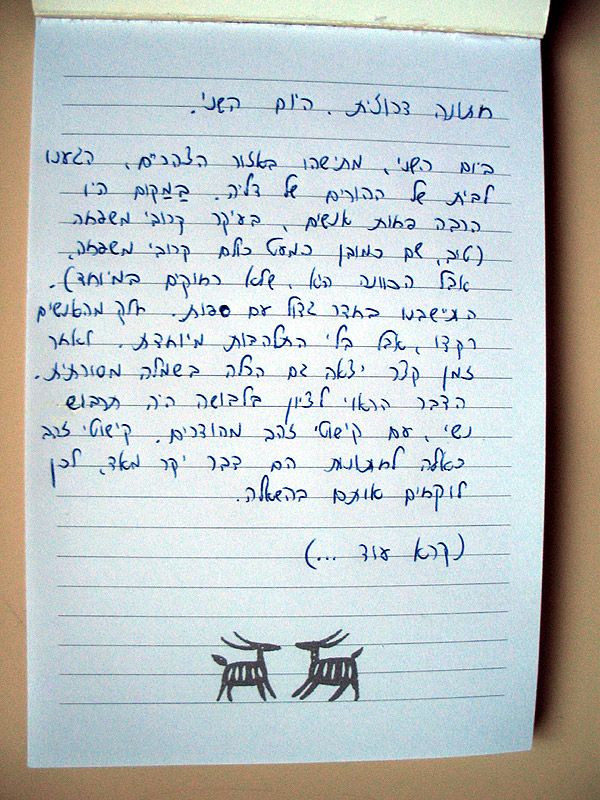 חתונה דרוזית. היום השני.
ביום השני, מתישהו באזור הצהריים, הגענו
לבית של ההורים של דליה. בַּמָקום היו
הרבה פחות אנשים, בעיקר קרובי משפחה
(טוב, שם כמובן כמעט כולם קרובי משפחה,
אבל הכוונה היא, שלא רחוקים במיוחד).
התיישבנו בחדר גדול עם ספות. חלק מהאנשים
רקדו, אבל בלי התלהבות מיוחדת. לאחר
זמן קצר יצאה גם הכלה בשמלה מסורתית.
הדבר הראוי לציון בלבושה היה תרבוש
נשי, עם קישוטי זהב מהודרים. קישוטי זהב
כאלה לחתונות הם דבר יקר מאד, לכן
לוקחים אותם בהשאלה.
(קרא עוד ...)